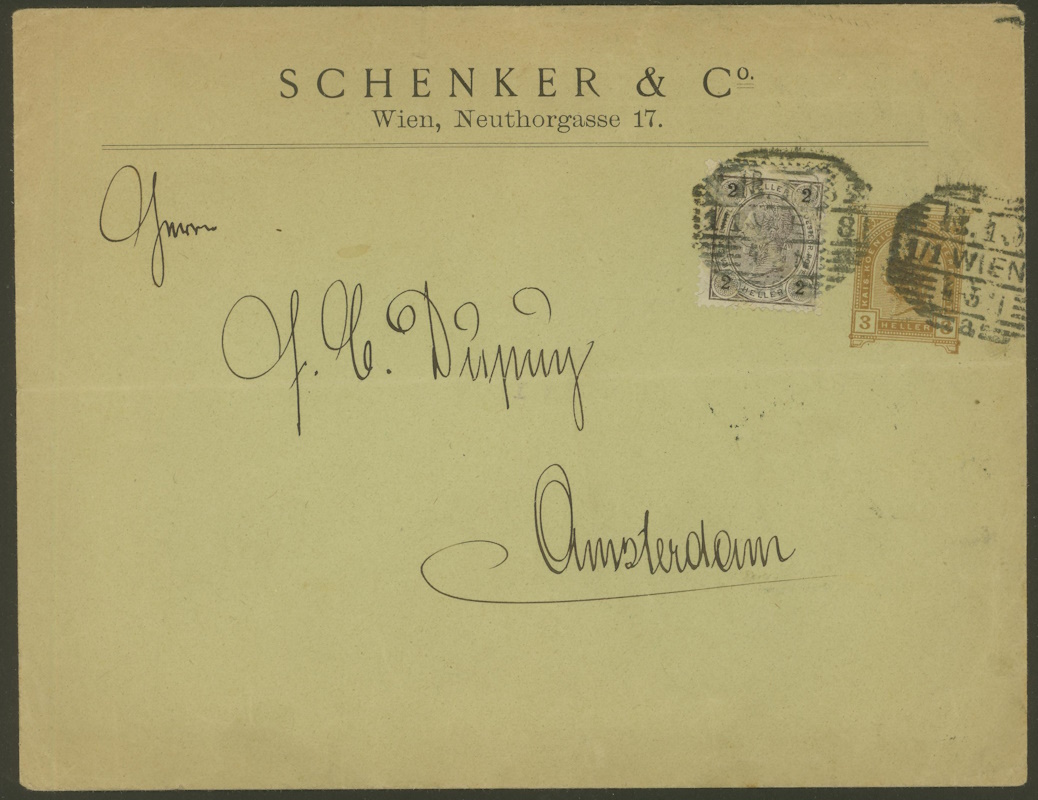 SCHENKER & Co.
Wien, Neuthorgasse 17.
Herrn
J. C. Dupuy
Amsterdam
2 HELLER 2
2 HELLER 2
3 HELLER 3
1/1 WIEN